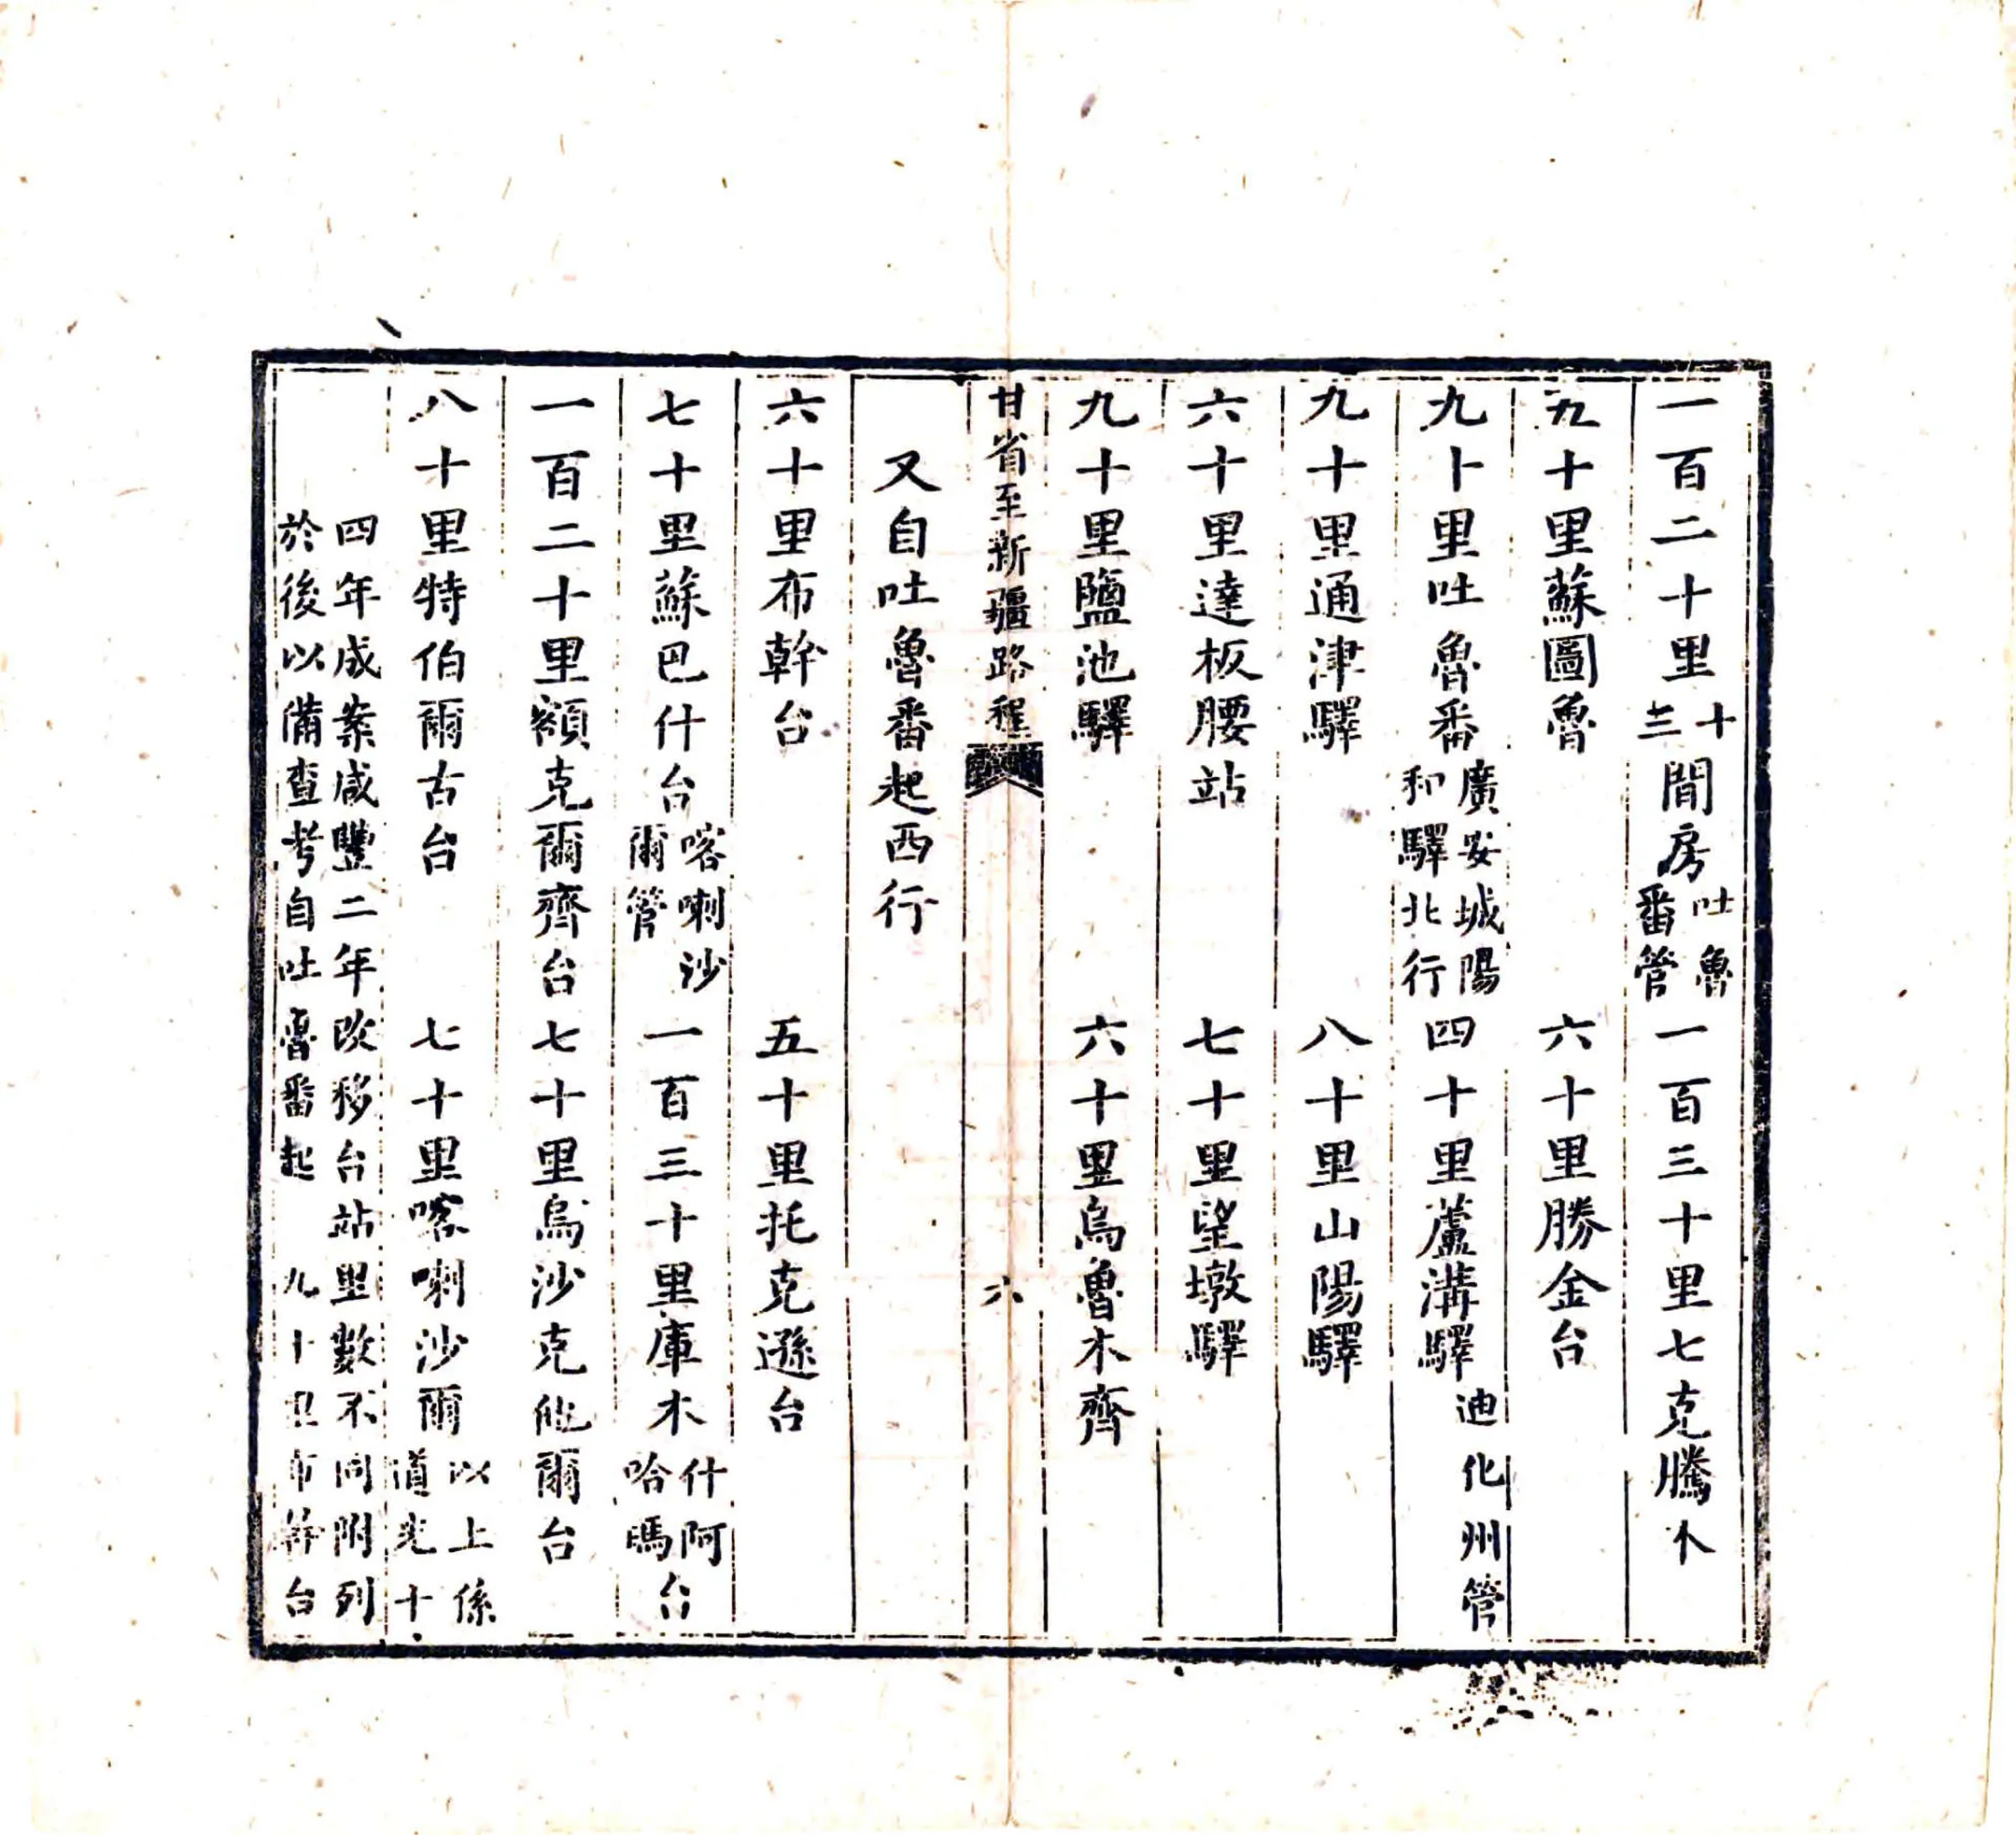 一百二十里十三間房吐魯番管一百三十里七克騰木
九十里蘇圖魯六十里勝金台
九十里吐魯番廣安城陽和驛北行四十里蘆溝驛迪化州管
九十里通津驛八十里山陽驛
六十里達板腰站七十里望墩驛
九十里鹽池驛六十里烏魯木齊
甘省至新疆路程 六
又自吐魯番起西行
六十里布幹台五十里托克遜台
七十里蘇巴什台喀喇沙爾管一百三十里庫木什阿哈瑪台
一百二十里額克爾齊台七十里烏沙克他爾台
八十里特伯爾古台七十里喀喇沙爾以上係道光十
四年成案咸豐二年改移台站里數不同附列
於後以備查考自吐魯番起 九十里布幹台